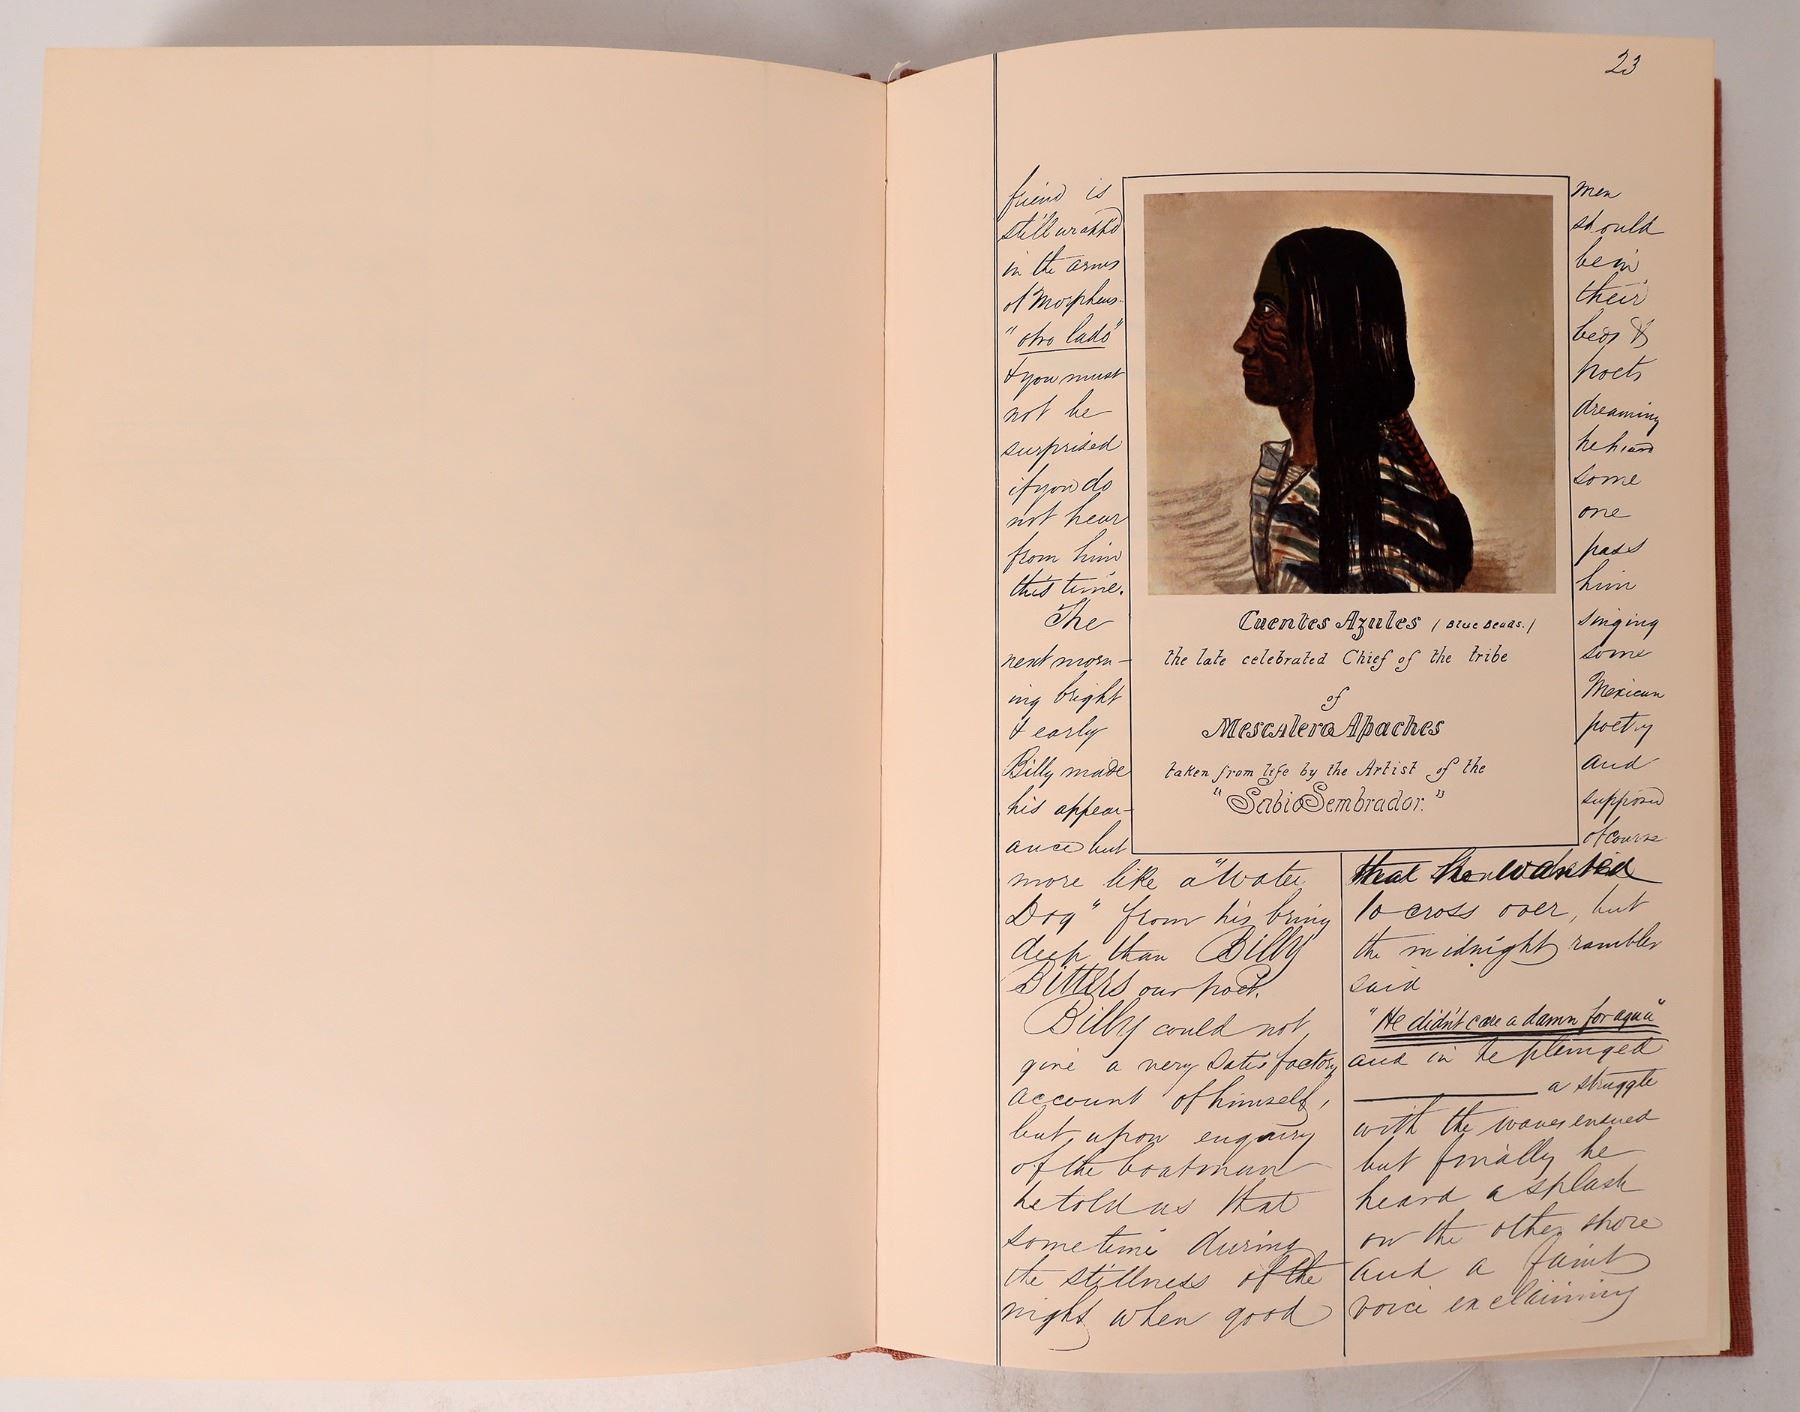 23
friend is
still wrapp'd
in the arms
of Morpheus-
"otro lado"
& you must
not be
surprised
if you do
not hear
from him
this time.
The
next morn-
ing bright
& early
Billy made
his appear-
ance but
more like a "Water
Dog" from his briny
deep than Billy
Bitters our poet.
Billy could not
give a very satisfactory
account of himself,
but upon enquiry
of the boatman
he told us that
sometime during
the stillness of the
night when good
Cuentes Azules (Blue Beads.)
the late celebrated Chief of the tribe
of
Mescalero Apaches
taken from life by the Artist of the
"Sabio Sembrador."
men
should
be in
their
beds &
poets
dreaming
he heard
some
one
pass
him
singing
some
Mexican
poetry
and
supposed
of course
that he wanted
to cross over, but
the midnight rambler
said
"He didn't care a damn for agua"
and in he plunged
a struggle
with the waves ensued
but finally he
heard a splash
on the other shore
and a faint
voice exclaiming